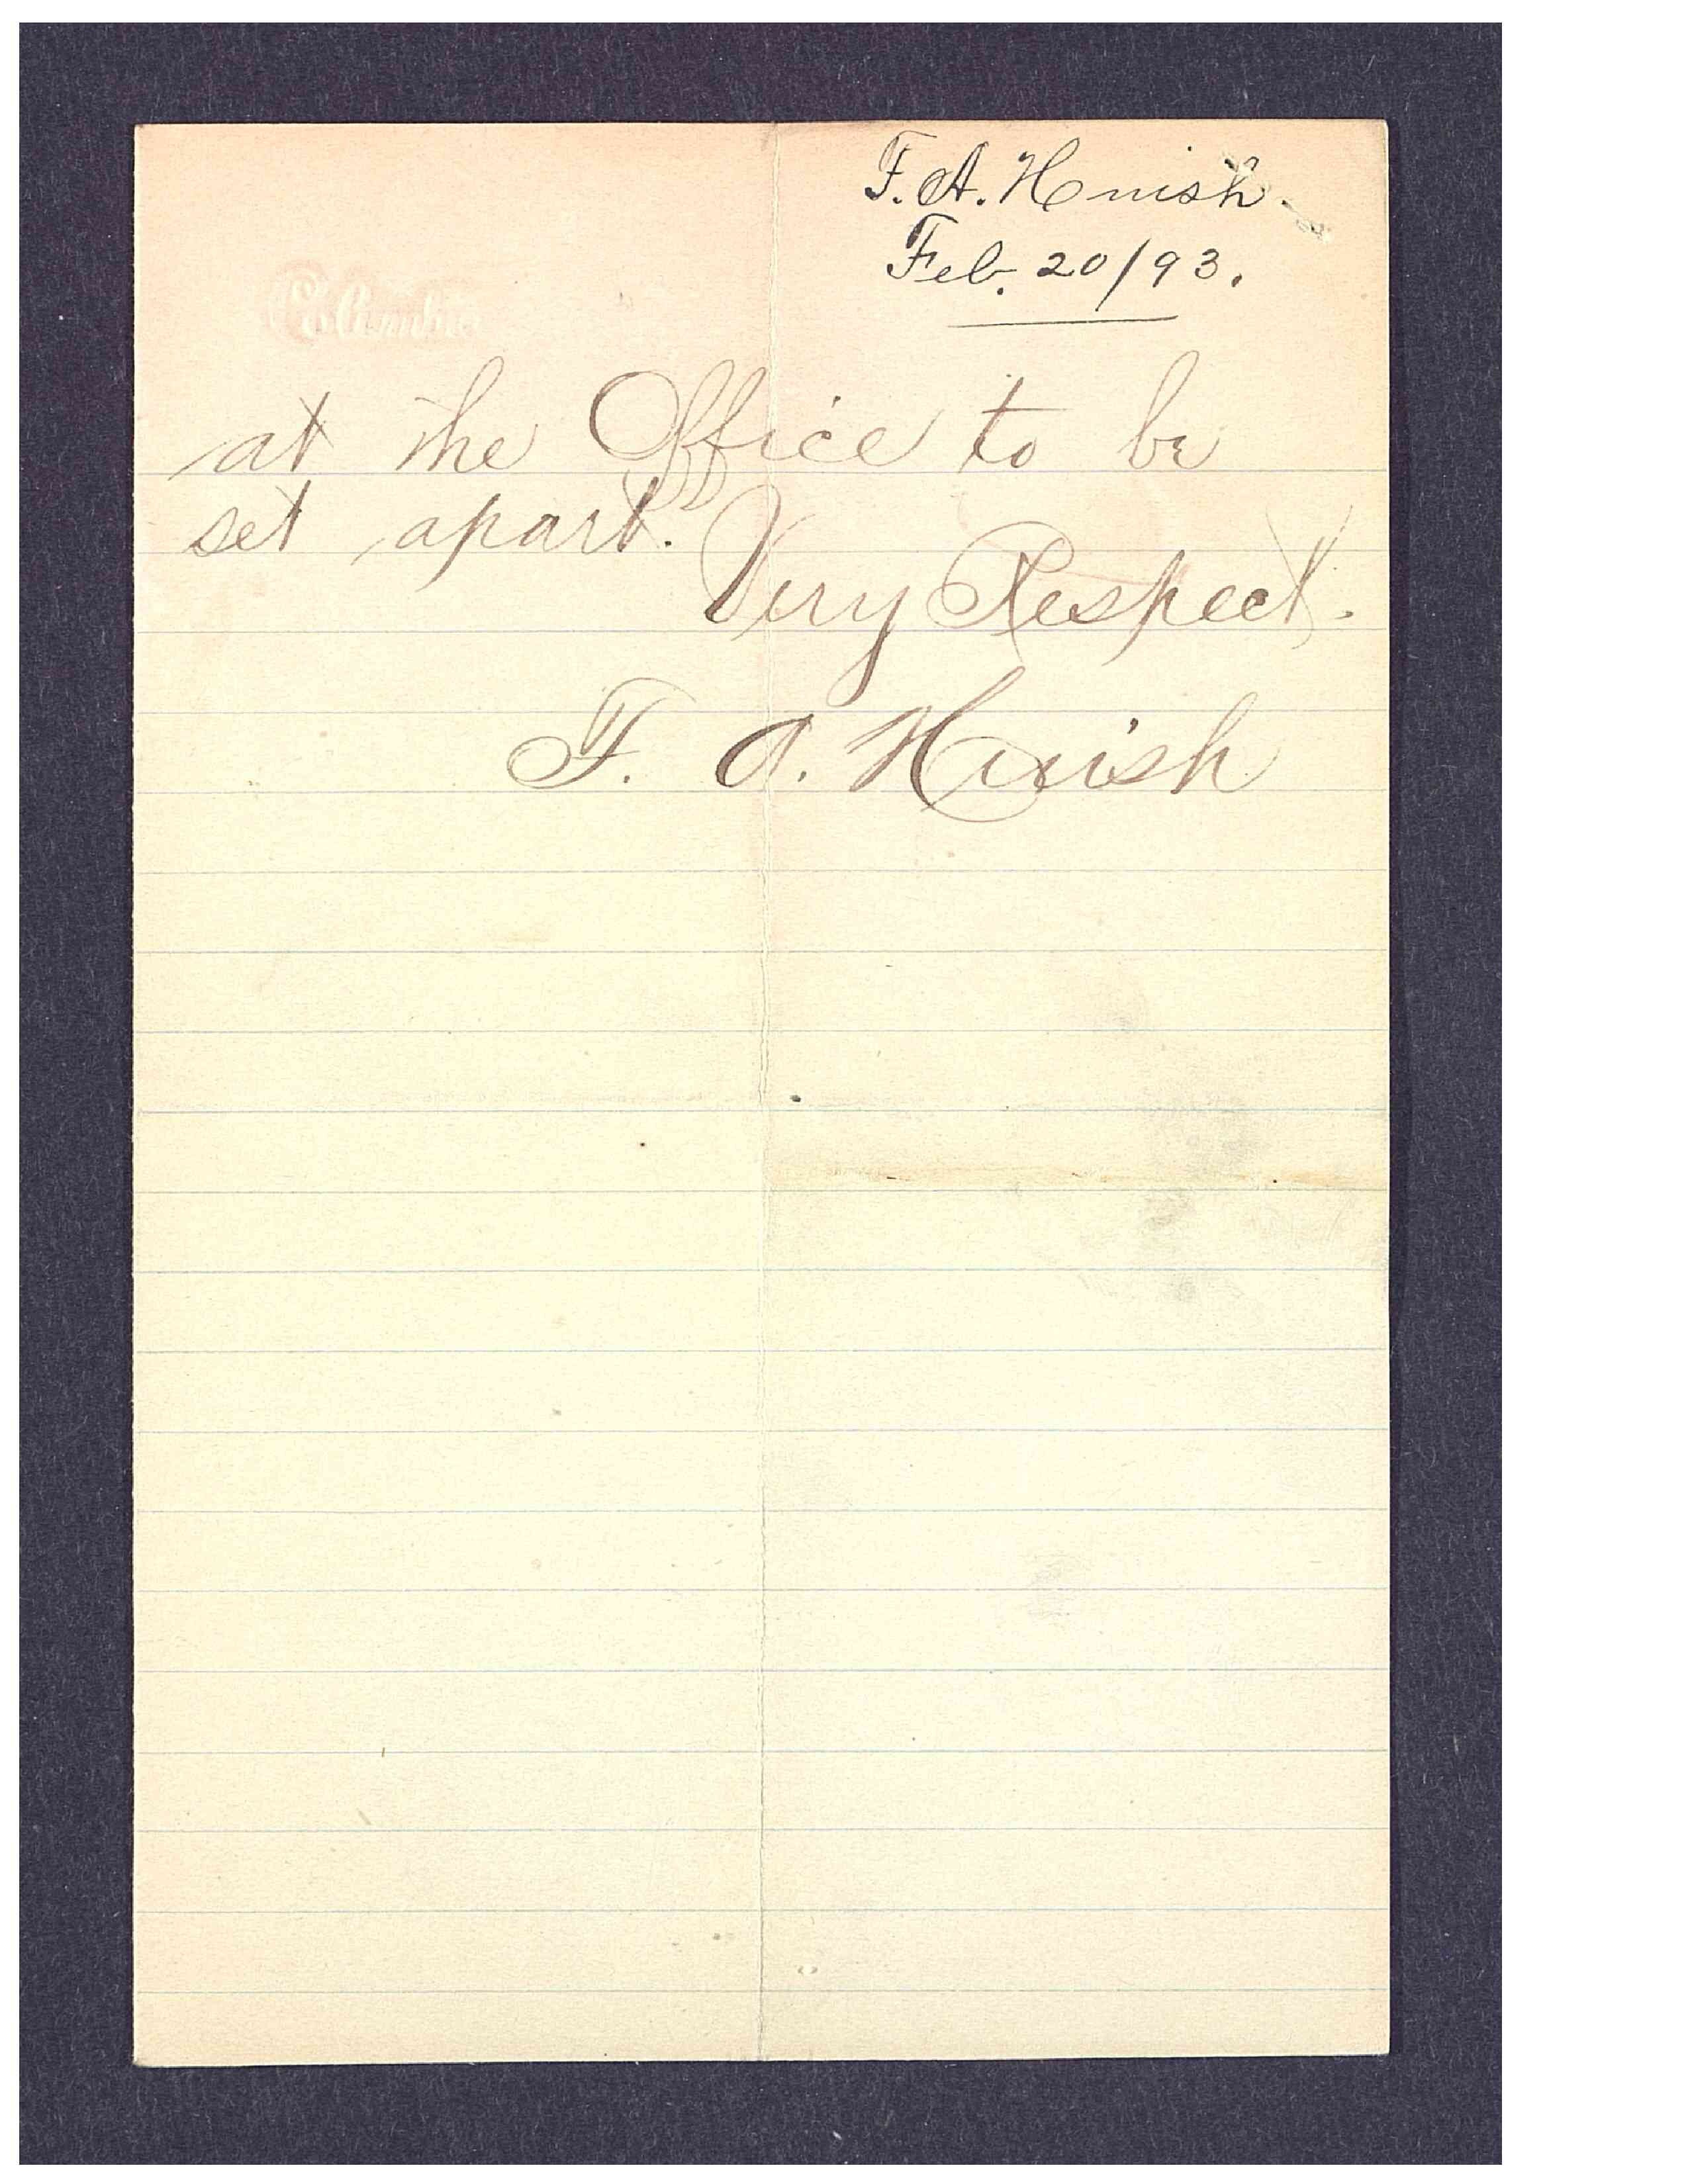 F. A. Huish.
Feb. 20/93.
at the Office to be
set apart.
Very Respect.
F. A. Huish